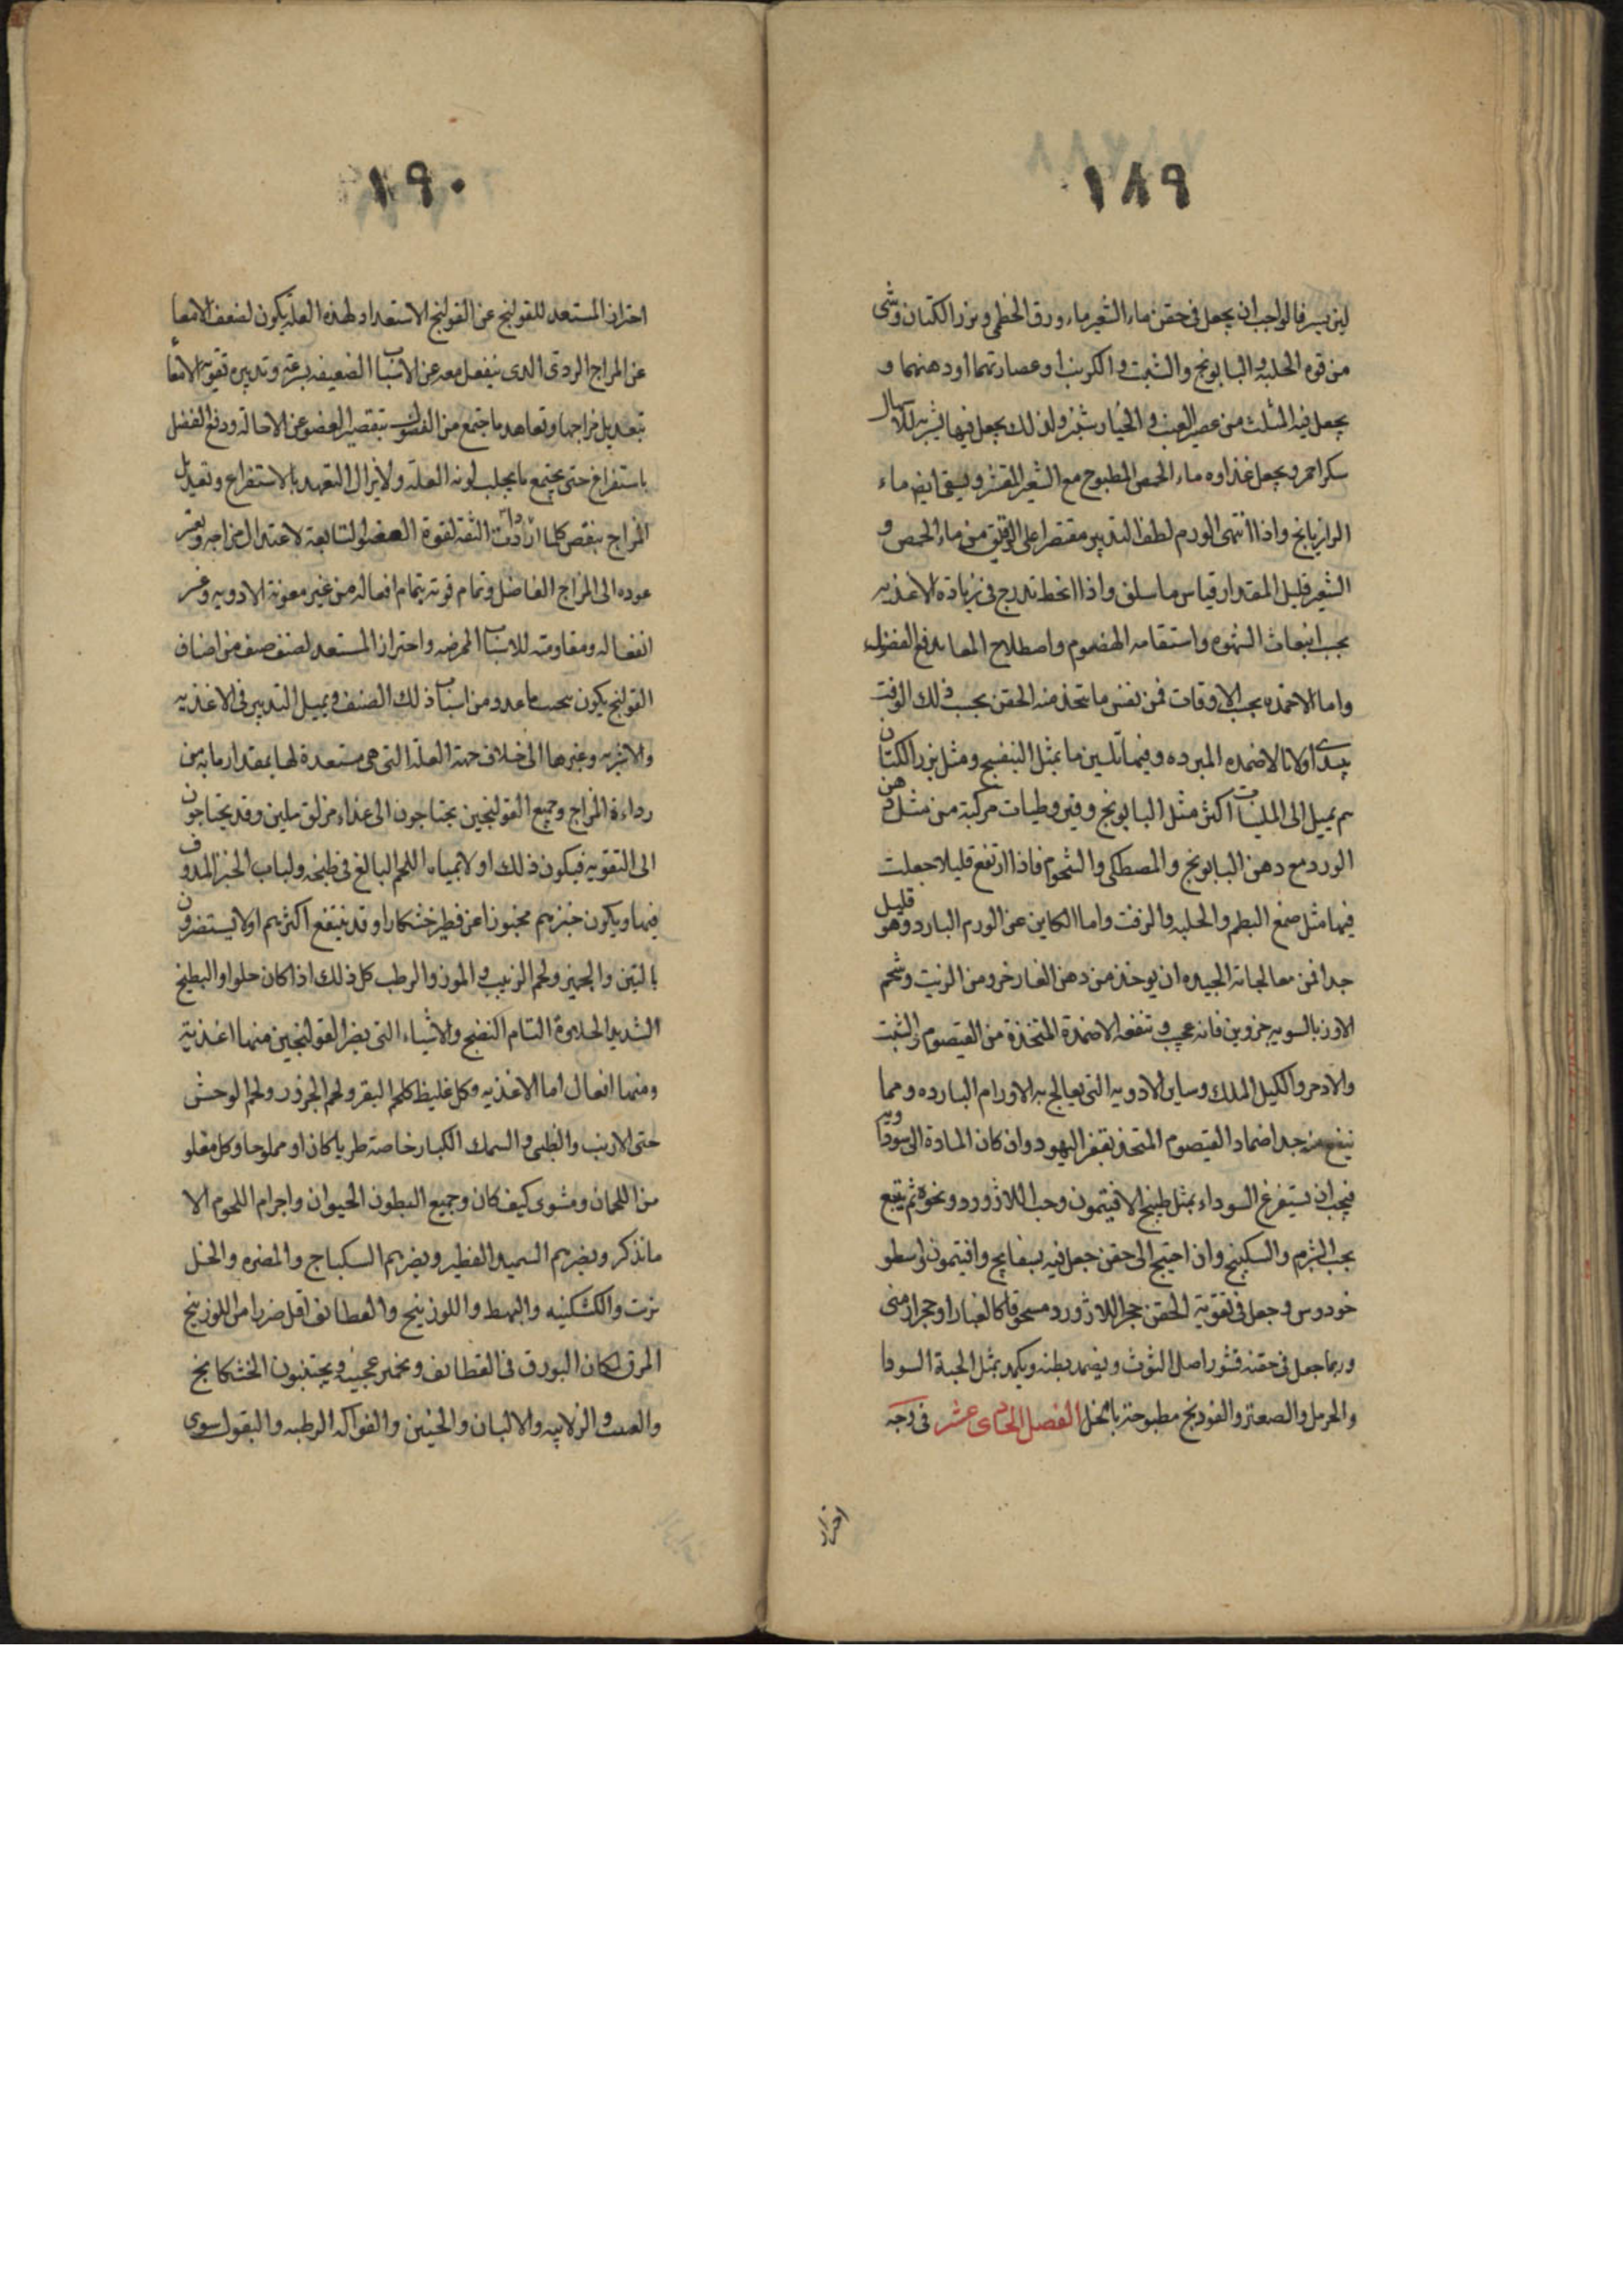 ١٨٩
لين يسير فالواجب ان يجعل فى حقن ماء الشعير ماء ورق الخطمى وبزر الكتان وشى
من قوه الحلبه والبابونج والشبت والكرنب او عصارتهما او دهنهما و
يجعل فيه المثلث من عصير العنب والخيار شنبر ولذلك يجعل فيها شربه للاسهال
سكر احمر ويجعل غذاوه ماء الحمص المطبوخ مع الشعير المقشر ويسقى ايضا ماء
الرازيانج واذا انتهى الورم لطف التدبير مقتصرا على الرقيق من ماء الحمص و
الشعير قليل المقدار وقياس ما سلف واذا انحط تدرج فى زياده الاغذيه
بحسب انبعاث الشهوه واستقامه الهضوم واصطلاح المعا بدفع الفضول
واما الاضمده بحسب الاوقات فمن نفس ما يتخذ منه الحقن بحسب ذلك الوقت
يبتدى اولا بالاضمده المبرده وفيها تليين ما بمثل البنفسج ومثل بزر الكتان
ثم يميل الى الملينات اكثر مثل البابونج وقيروطيات مركبة من مثل دهن
الورد مع دهن البابونج والمصطكى والشحوم فاذا ارتفع قليلا جعلت
فيها مثل صمغ البطم والحلبه والزفت واما الكاين عن الورم البارد وهو قليل
جدا فمن معالجاته الجيده ان يوخذ من دهن الغار جزو ومن الزيت وشحم
الاوز بالسويه جزوين فانه عجيب وتنفعه الاضمدة المتخذة من القيصوم والشبت
والاذخر واكليل الملك وساير الادويه التى يعالج به الاورام البارده ومما
ينفع منه جدا ضماد القيصوم المتخذ بقفر اليهود وان كان المادة الى سوداويه
فيجب ان يستفرغ السوداء بمثل طبيخ الافتيمون وحب اللاژورد ونحوه ثم يتبع
بحب الشبرم والسكبينج وان احتيج الى حقن جعل فيه بسفايج وافتيمون واسطو
خودوس وجعل فى تقوية الحقن حجر اللاژورد مسحوقا كالغبار او حجر ارمنى
وربما جعل فى حقنه قشور اصل التوث ويضمد بطنه ويكمد بمثل الحبة السودا
والحرمل والصعتر والفودنج مطبوخة بالخل الفصل الحادى عشر فى وجه
احتراز
١٩٠
احتراز المستعد للقولنج عن القولنج الاستعداد لهذه العلة يكون لضعف الامعا
عن المزاج الردى الذى ينفعل معه عن الاسباب الضعيفه بسرعه وتدبيره تقويه الامعا
بتعديل مزاجها وتعاهد ما يجتمع من الفضول بتقصير العضو عن الاحالة ودفع الفضل
باستفراغ حتى يجتمع ما يجلب لونه العلة ولا يزال التعهد بالاستفراغ وتعديل
المزاج ينقص كلما ازدادت الثقه لقوة العضو لتابعة لاعتدال مزاجه وبعسر
عوده الى المزاج الفاضل وتمام قوته بتمام افعاله من غير معونة الادويه وعسر
انفعاله ومقاومته للاسباب الممرضه واحتراز المستعد لصنف صنف من اصناف
القولنج يكون بحسب ما عدد من اسباب ذلك الصنف ويميل التدبير فى الاغذيه
والاشربه وغيرها الى خلاف جهة العلة التى هى مستعدة لها بمقدار ما به من
رداءة المزاج وجميع القولنجين يحتاجون الى غذاء مزلق ملين وقد يحتاجون
الى التقويه فيكون ذلك اولا بمياه اللحم البالغ فى طبخه ولباب الخبز المدوف
فيها ويكون خبزهم مخبوزا عن فطير خشكارا وقد ينتفع اكثرهم او لا يستضرون
بالتين والجميز ولحم الزبيب والموز والرطب كل ذلك اذا كان حلوا والبطيخ
الشديد الحلاوة التام النضج والاشياء التى يضر القولنجين منها اغذية
ومنها افعال اما الاغذيه وكل غليظ كلحم البقر ولحم الجزور ولحم الوحش
حتى الارنب والظبى والسمك الكبار خاصة طريا كان او مملوحا وكل مقلو
من اللحمان ومشوى كيف كان وجميع البطون الحيوان واجرام اللحوم الا
مانذكر ويضرهم السميد والفطير ويضرهم السكباج والمضيره والخل
بزيت والكشكيه والبهط واللوزينج والقطايف اقل ضررا من اللوزينج
المرق لمكان البورق فى القطايف وتخمير عجينه ويجتنبون الخشكانج
والعصب والزلابيه والالبان والجبن والفواكه الرطبه والبقول سوى